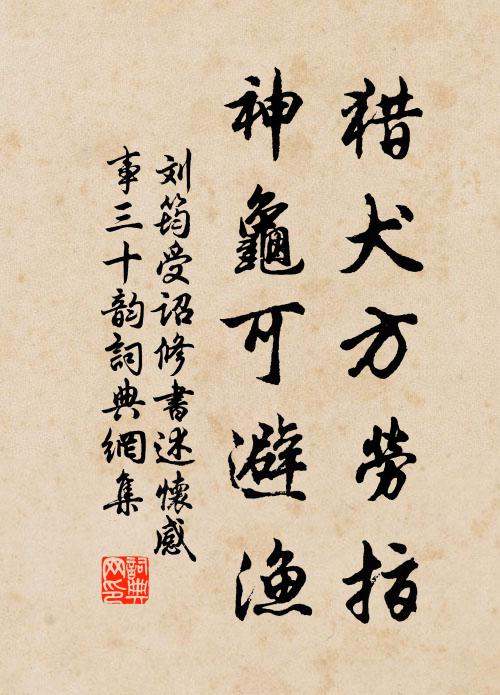 猎犬方劳指
神龜可避渔
刘筠受诏修書述懷感
事三十韵詞典網集
詞典网印